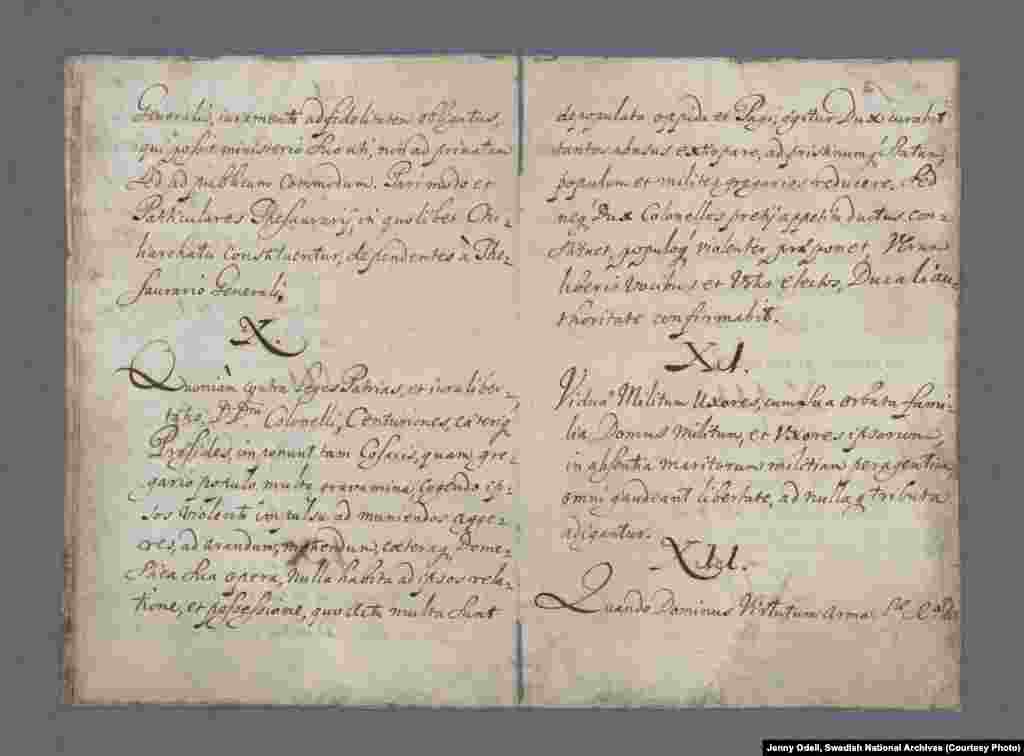 Generali, iuramento ad fidelitatem obligatus,
qui possit ministerio suo uti, non ad privatum
sed ad publicum commodum. Pari modo et
Particulares Thesaurarij, in quolibet Chi-
liarchatu constituentur, dependentes à The-
saurario Generali.
X.
Quoniam contra leges Patrias, et iura liber-
Colonelli, Centuriones, cæteriq
Præsides, imponunt tam Cosacis, quam gre-
gario populo multa gravamina, cogendo ip-
sos violent impulsu ad muniendos agge-
res, ad arandum, metendum, cæteraq Dome-
stica sua opera, nulla habita ad ipsos rela-
tione, et possessione, quo multa sunt
depopulata oppida et Pagi, igitur Dux curabit
tantos abusus extirpare, ad pristinum statum
populum et milites gregarios reducere. Sed
neq Dux Colonellos pretij appetitu ductus con-
stituet, populoq violenter præponet, Verum
liberis vocibus et Votis electos, Ducali au-
thoritate confirmabit.
XI.
Viduæ Militum Uxores, cum sua orbata fami-
lia Domus Militum, et Uxores ipsorum,
in absentia maritorum militiam peragentium
omni gaudeant libertate, ad nullaq tributa
adigantur.
XII.
Quando Dominus Virtutum Arma
Jenny Odell, Swedish National Archives (Courtesy Photo)